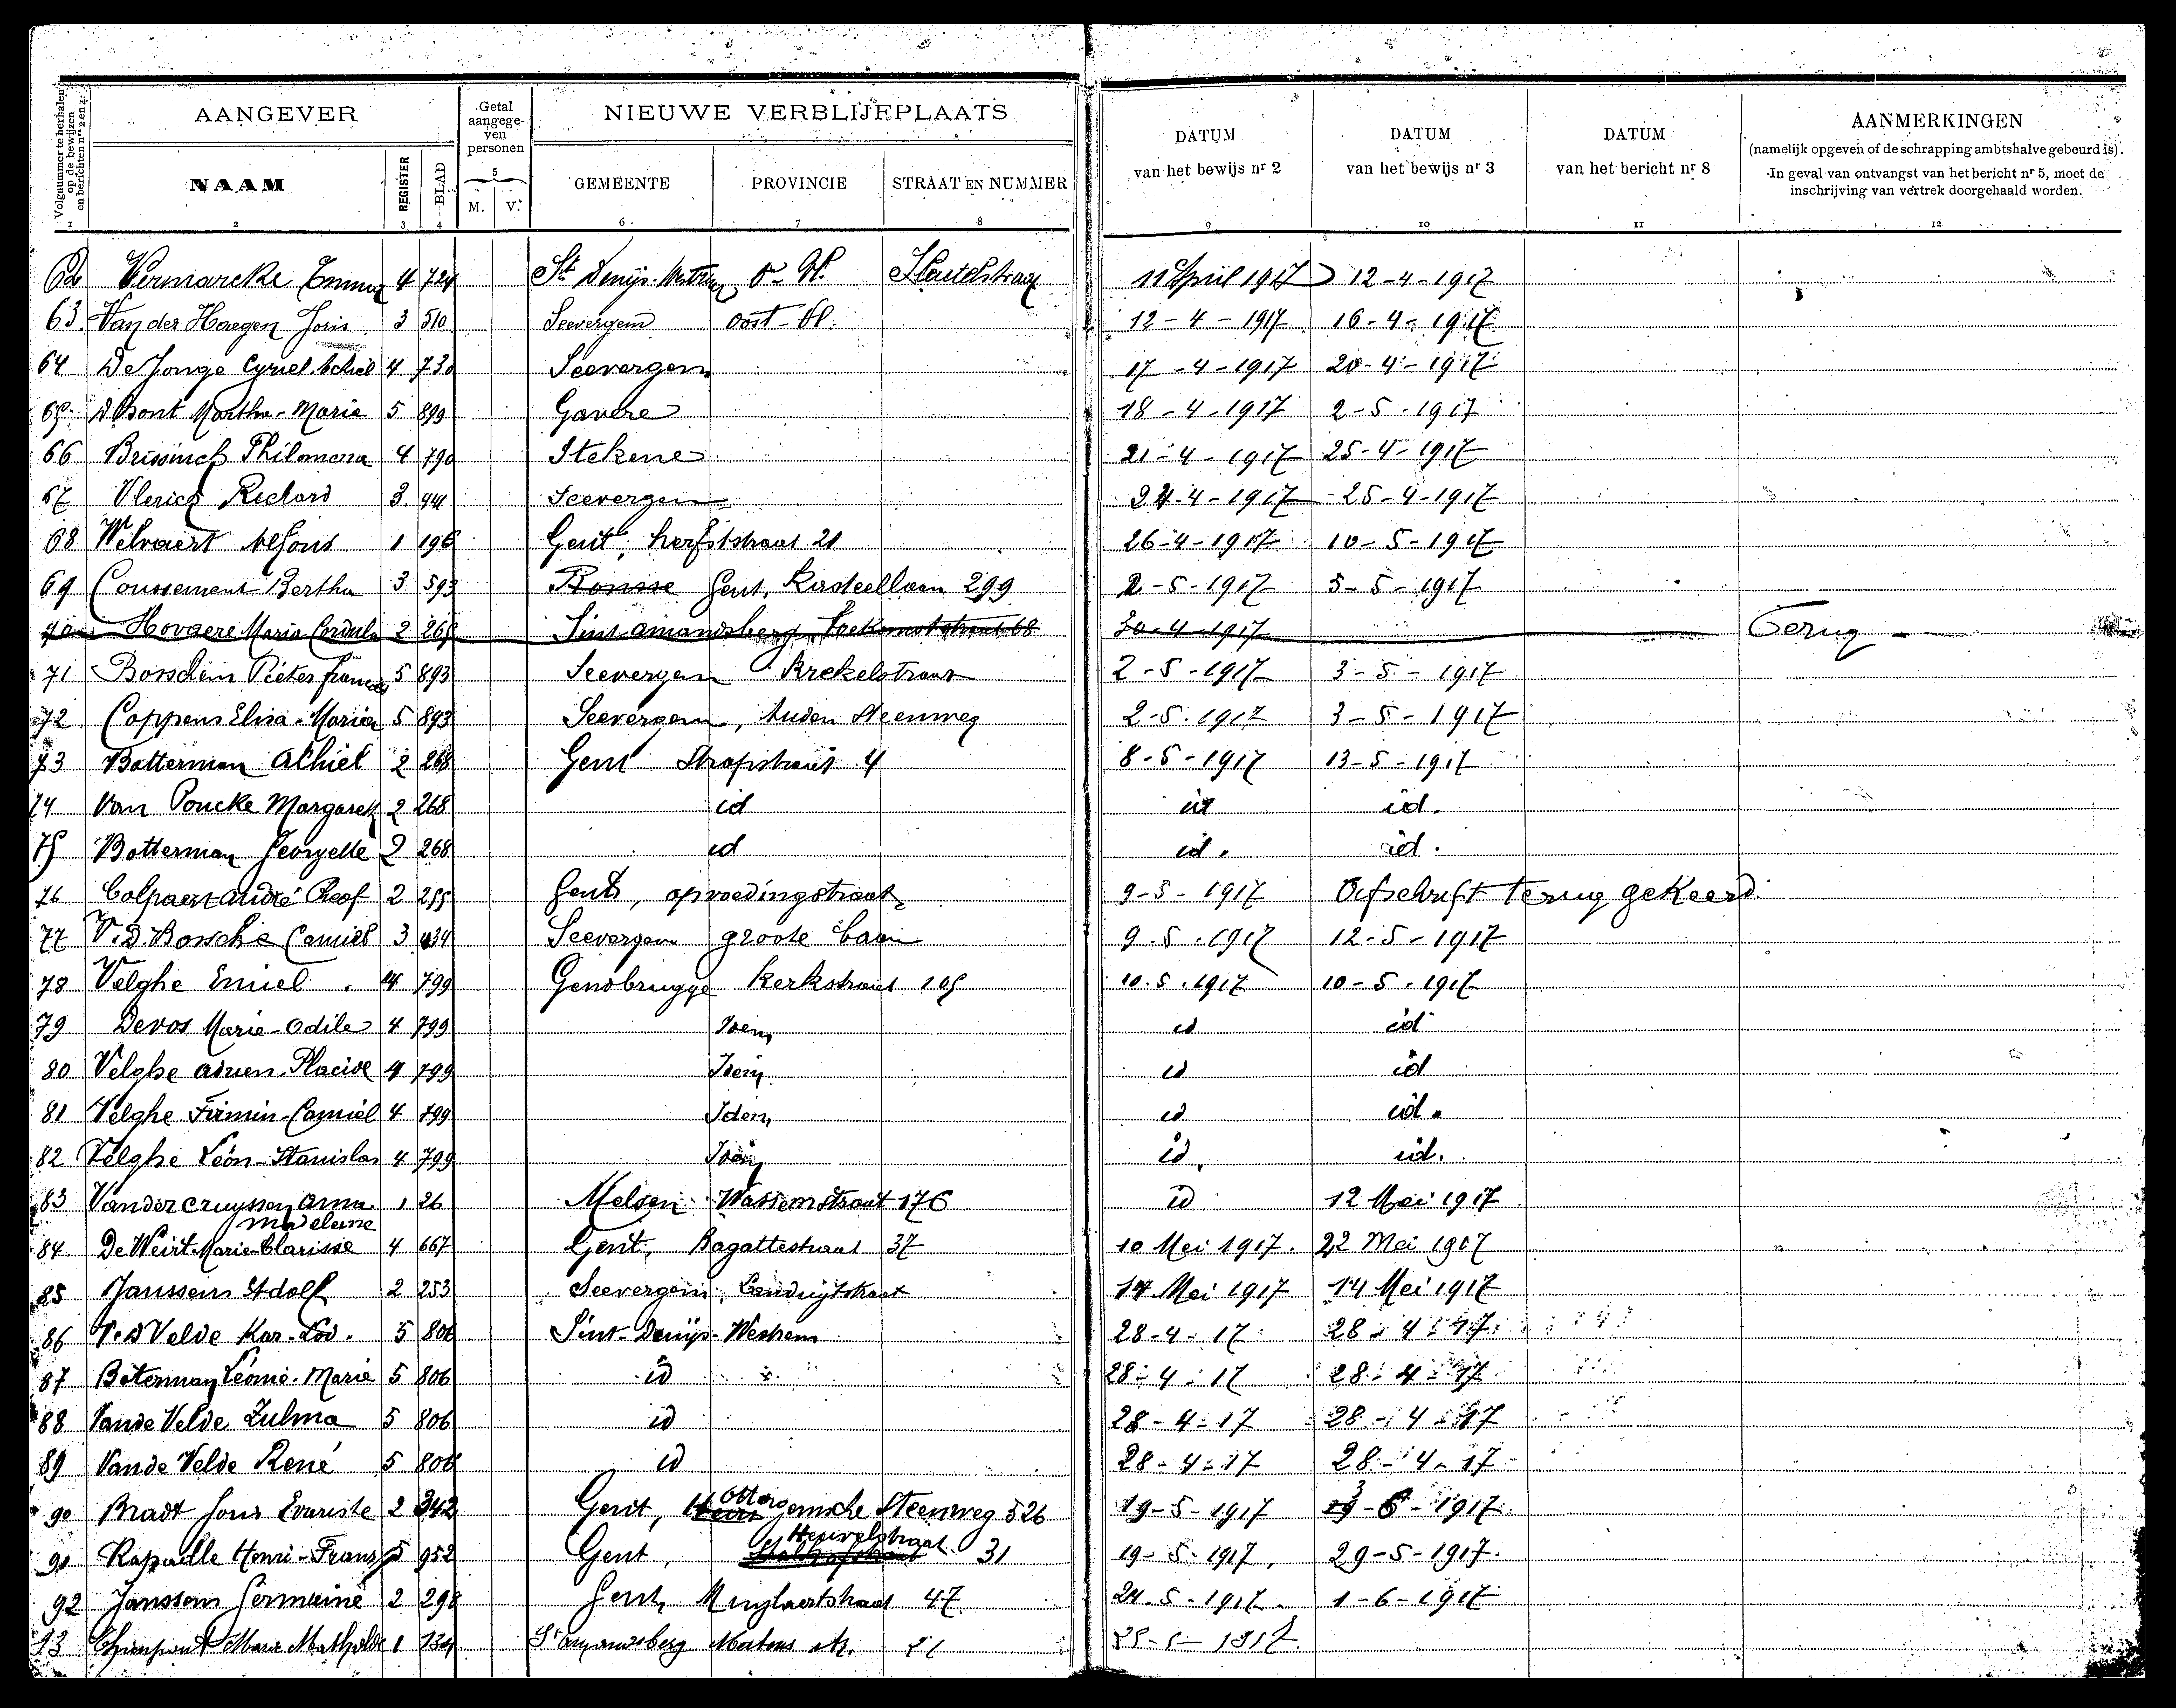 Volgnummer te herhalen op de bewijzen en berichten nrs 2 en 4.
AANGEVER
Getal aangegeven personen
NIEUWE VERBLIJFPLAATS
DATUM van het bewijs nr 2
DATUM van het bewijs nr 3
DATUM van het bericht nr 8
AANMERKINGEN
(namelijk opgeven of de schrapping ambtshalve gebeurd is).
In geval van ontvangst van het bericht nr 5, moet de
inschrijving van vertrek doorgehaald worden.
NAAM REGISTER BLAD M. V. GEMEENTE PROVINCIE STRAAT EN NUMMER
1 2 3 4 5 6 7 8 9 10 11 12
62 Vermarcke Emma 4 724 St Denijs-Westrem O-Vl. Sleutelstraat 11 April 1917 12-4-1917
63 Van der Haegen Joris 3 510 Seevergem Oost-Vl. 12-4-1917 16-4-1917
64 De Jonge Cyriel Achiel 4 730 Seevergem 17-4-1917 20-4-1917
65 D'hont Martha-Maria 5 899 Gavere 18-4-1917 2-5-1917
66 Brissinck Philomena 4 790 Stekene 21-4-1917 25-4-1917
67 Vlerick Richard 3 Seevergem 24-4-1917 25-4-1917
68 Welvaert Alfons 1 196 Gent, herfststraat 21 26-4-1917 10-5-1917
69 Coussement Bertha 3 593 Ronsse Gent, Kasteellaan 299 2-5-1917 5-5-1917
70 Hovaere Maria Cordula 2 265 Sint amandsberg, Toekomststraat 68 30-4-1917 Terug
71 Bosschem Pieter 5 893 Seevergem Krekelstraat 2-5-1917 3-5-1917
72 Coppens Elisa-Maria 5 893 Seevergem, Auden Steenweg 2-5-1917 3-5-1917
73 Botterman Achiel 2 268 Gent Stropstraat 4 8-5-1917 13-5-1917
74 Van Poucke Margareta 2 268 id id id.
75 Botterman Georgette 2 268 id id. id.
76 Colpaert André 2 255 Gent, opvoedingstraat 9-5-1917 Afschrift terug gekeerd
77 V.D. Bossche Camiel 3 434 Seevergem groote baan 9-5-1917 12-5-1917
78 Velghe Emiel 4 799 Gendbrugge Kerkstraat 105 10-5-1917 10-5-1917
79 Devos Marie-Odile 4 799 Idem id id
80 Velghe Placide 4 799 Idem id id
81 Velghe Firmin-Camiel 4 799 Idem id id.
82 Velghe Léon-Stanislas 4 799 Idem id. id.
83 Vandercruyssen Anna 1 26 Melsen Wassemstraat 176 id 12 Mei 1917
madeleine
84 De Weirt Marie-Clarisse 4 667 Gent, Bagattestraat 37 10 Mei 1917. 22 Mei 1917
85 Janssens Adolf 2 253 Seevergem, Landuytstraat 14 Mei 1917 14 Mei 1917
86 V.d Velde Kar-Lod. 5 806 Sint-Denijs-Westrem 28-4-17 28-4-17
87 Boterman Léonie-Marie 5 806 id 28-4-17 28-4-17
88 Van de Velde Zulma 5 806 id 28-4-17 28-4-17
89 Van de Velde René 5 806 id 28-4-17 28-4-17
90 Bradt Joris Evariste 2 342 Gent, Ottergemsche Steenweg 526 19-5-1917 3-6-1917
91 Rapaille Henri-Frans 5 952 Gent, Heuvelstraat 31 19-5-1917. 29-5-1917.
92 Janssens Germaine 2 298 Gent, Muylaertstraat 47 24-5-1917. 1-6-1917
93 Maria Mathilde 1 134 St Amandsberg 25-5-1917.